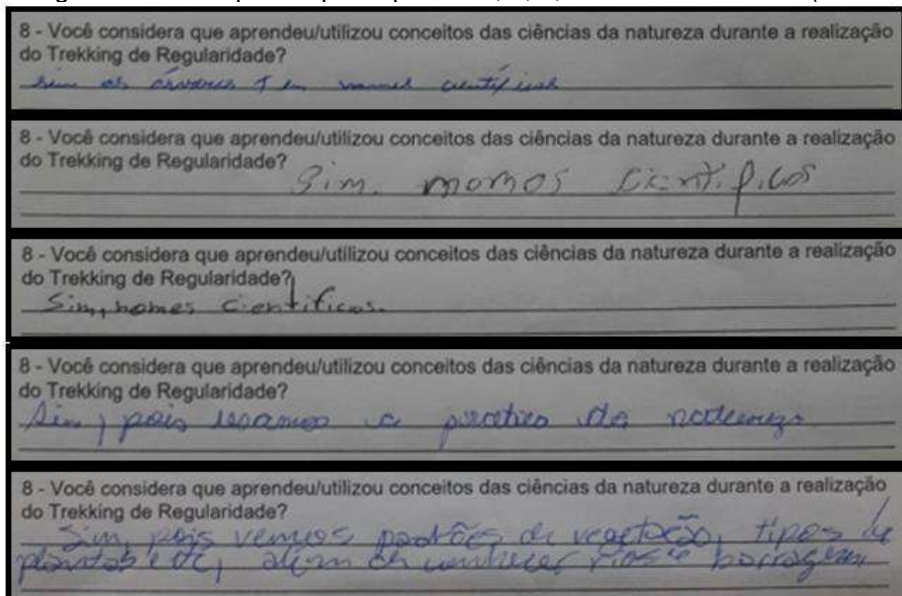 8 - Você considera que aprendeu/utilizou conceitos das ciências da natureza durante a realização
do Trekking de Regularidade?
sim as árvores tem nomes científicos
8 - Você considera que aprendeu/utilizou conceitos das ciências da natureza durante a realização
do Trekking de Regularidade?
Sim. momos Cientificos
8 - Você considera que aprendeu/utilizou conceitos das ciências da natureza durante a realização
do Trekking de Regularidade?
Sim, nomes cientificos.
8 - Você considera que aprendeu/utilizou conceitos das ciências da natureza durante a realização
do Trekking de Regularidade?
Sim, pois usamos a pratica da natureza
8 - Você considera que aprendeu/utilizou conceitos das ciências da natureza durante a realização
do Trekking de Regularidade?
Sim, pois vemos padrões de vegetação, tipos de
plantas etc, além de conhecer rios e barragem